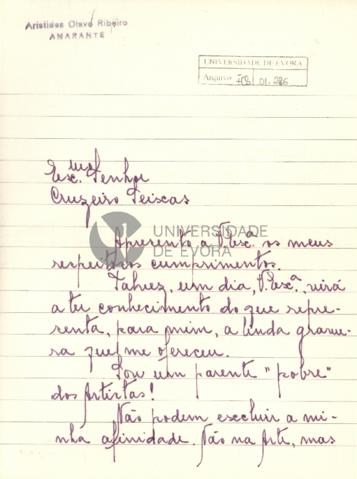 Aristides Olavo Ribeiro
AMARANTE
UNIVERSIDADE DE ÉVORA
Arquivo 01.286
Exmº Senhor
Cruzeiro Seixas
UNIVERSIDADE
DE ÉVORA
Apresento a V. Exª os meus
respeitosos cumprimentos.
Talvez, um dia, V. Exª virá
a ter conhecimento do que repre-
senta, para mim, a linda gravu-
ra que me ofereceu.
Sou um parente "pobre"
dos Artistas!
Não podem escluir a mi-
nha afinidade. Não na Arte, mas